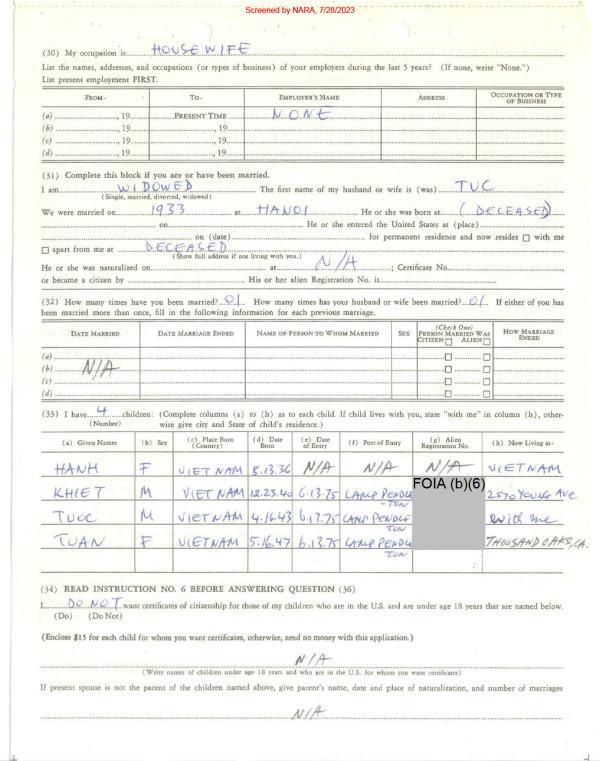 Screened by NARA, 7/28/2023
(30) My occupation is HOUSEWIFE
List the names, addresses, and occupations (or types of business) of your employers during the last 5 years? (If none, write "None.")
List present employment FIRST.
FROM- TO- EMPLOYER'S NAME ADDRESS OCCUPATION OR TYPE OF BUSINESS
(a) , 19 PRESENT TIME NONE
(b) , 19 , 19
(c) , 19 , 19
(d) , 19 , 19
(31) Complete this block if you are or have been married.
I am WIDOWED The first name of my husband or wife is (was) TUC
(Single, married, divorced, widowed)
We were married on 1933 at HANOI He or she was born at (DECEASED)
on He or she entered the United States at (place)
on (date) for permanent residence and now resides ☐ with me
☐ apart from me at DECEASED
(Show full address if not living with you.)
He or she was naturalized on at N/A ; Certificate No. ,
or became a citizen by His or her alien Registration No. is
(32) How many times have you been married? 01 How many times has your husband or wife been married? 01 If either of you has
been married more than once, fill in the following information for each previous marriage.
DATE MARRIED DATE MARRIAGE ENDED NAME OF PERSON TO WHOM MARRIED SEX (Check One) PERSON MARRIED WAS CITIZEN ☐ ALIEN ☐ HOW MARRIAGE ENDED
(a) ☐ ☐
(b) N/A ☐ ☐
(c) ☐ ☐
(d) ☐ ☐
(33) I have 4 children: (Complete columns (a) to (h) as to each child. If child lives with you, state "with me" in column (h), other-
(Number) wise give city and State of child's residence.)
(a) Given Names (b) Sex (c) Place Born (Country) (d) Date Born (e) Date of Entry (f) Port of Entry (g) Alien Registration No. (h) Now Living at-
HANH F VIET NAM 8.13.36 N/A N/A N/A VIETNAM
FOIA (b)(6)
KHIET M VIET NAM 12.23.40 6.13.75 CAMP PENDLE-TON 2570 YOUNG AVE
TUOC M VIETNAM 4.16.43 6.13.75 CAMP PENDLETON With me
TUAN F VIETNAM 5.16.47 6.13.75 CAMP PENDLETON THOUSAND OAKS, CA.
(34) READ INSTRUCTION NO. 6 BEFORE ANSWERING QUESTION (36)
I DO NOT want certificates of citizenship for those of my children who are in the U.S. and are under age 18 years that are named below.
(Do) (Do Not)
(Enclose $15 for each child for whom you want certificates, otherwise, send no money with this application.)
N/A
(Write names of children under age 18 years and who are in the U.S. for whom you want certificates)
If present spouse is not the parent of the children named above, give parent's name, date and place of naturalization, and number of marriages
N/A